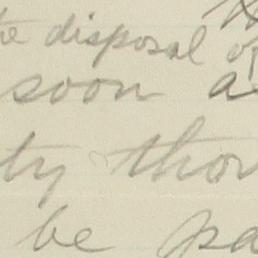 the disposal of
soon as
ty thou
be pa